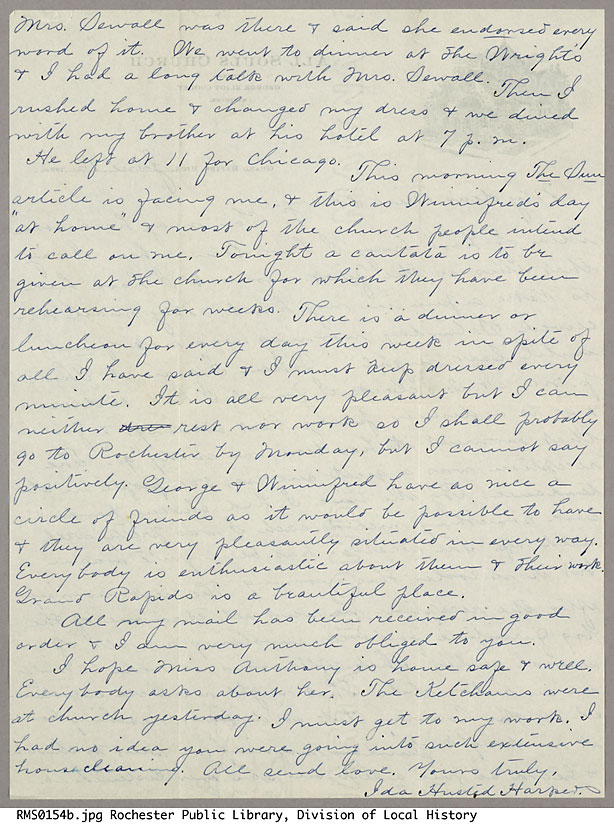 Mrs. Sewall was there & said she endorsed every
word of it. We went to dinner at the Wright's
& I had a long talk with Mrs. Sewall. Then I
rushed home & changed my dress & we dined
with my brother at his hotel at 7 p.m.
He left at 11 for Chicago.
This morning The Sun
article is facing me, & this is Winnifred's day
"at home" & most of the church people intend
to call on me. Tonight a cantata is to be
given at the church for which they have been
rehearsing for weeks. There is a dinner or
luncheon for every day this week in spite of
all I have said & I must keep dressed every
minute. It is all very pleasant but I can
neither rest nor work so I shall probably
go to Rochester by Monday, but I cannot say
positively. George & Winnifred have as nice a
circle of friends as it would be possible to have
& they are very pleasantly situated in every way.
Everybody is enthusiastic about them & their work.
Grand Rapids is a beautiful place.
All my mail has been received in good
order & I am very much obliged to you.
I hope Miss Anthony is home safe & well.
Everybody asks about her. The Ketchams were
at church yesterday. I must get to my work. I
had no idea you were going into such extensive
housecleaning. All send love. Yours truly,
Ida Husted Harper.
RMS0154b.jpg Rochester Public Library, Division of Local History